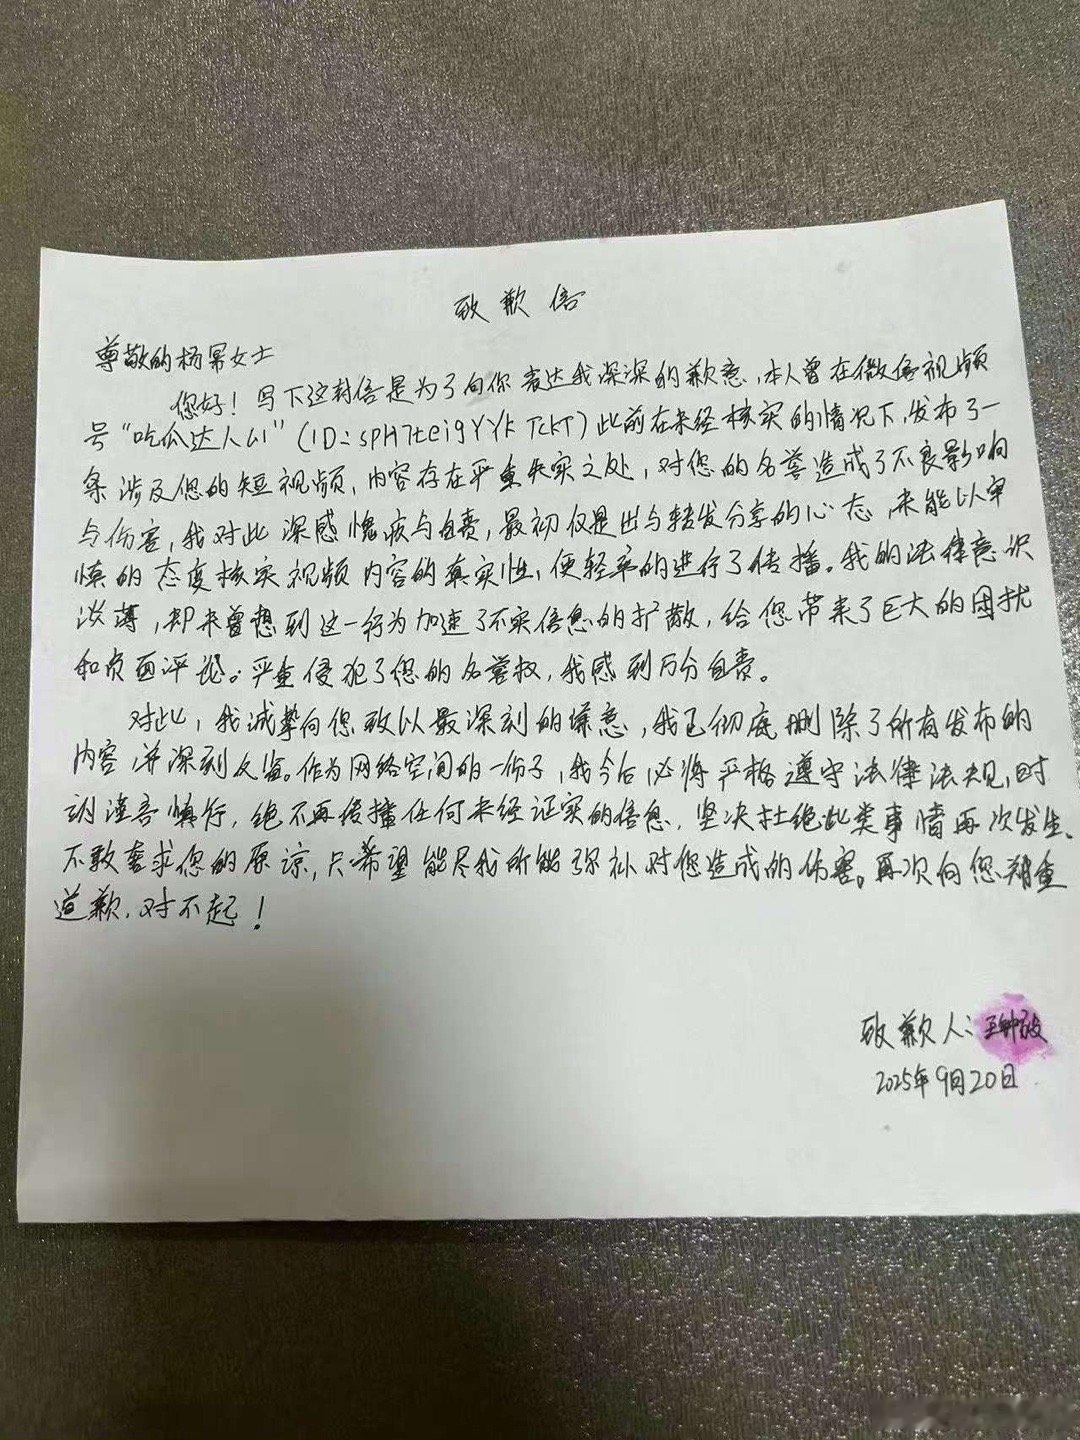 致歉信
尊敬的杨幂女士
您好！写下这封信是为了向你表达我深深的歉意，本人曾在微信视频
号“吃瓜达人山”（ID：sph7teig9YYkTckT）此前在未经核实的情况下，发布了一
条涉及您的短视频，内容存在严重失实之处，对您的名誉造成了不良影响
与伤害，我对此深感愧疚与自责，最初仅是出与转发分享的心态，未能以审
慎的态度核实视频内容的真实性，便轻率的进行了传播。我的法律意识
淡薄，却未曾想到这一行为加速了不实信息的扩散，给您带来了巨大的困扰
和负面评论。严重侵犯了您的名誉权，我感到万分自责。
对此，我诚挚向您致以最深刻的歉意，我已彻底删除了所有发布的
内容，并深刻反省。作为网络空间的一份子，我今后必将严格遵守法律法规，时
刻谨言慎行，绝不再传播任何未经证实的信息，坚决杜绝此类事情再次发生。
不敢奢求您的原谅，只希望能尽我所能弥补对您造成的伤害。再次向您郑重
道歉，对不起！
致歉人：王
2025年9月20日